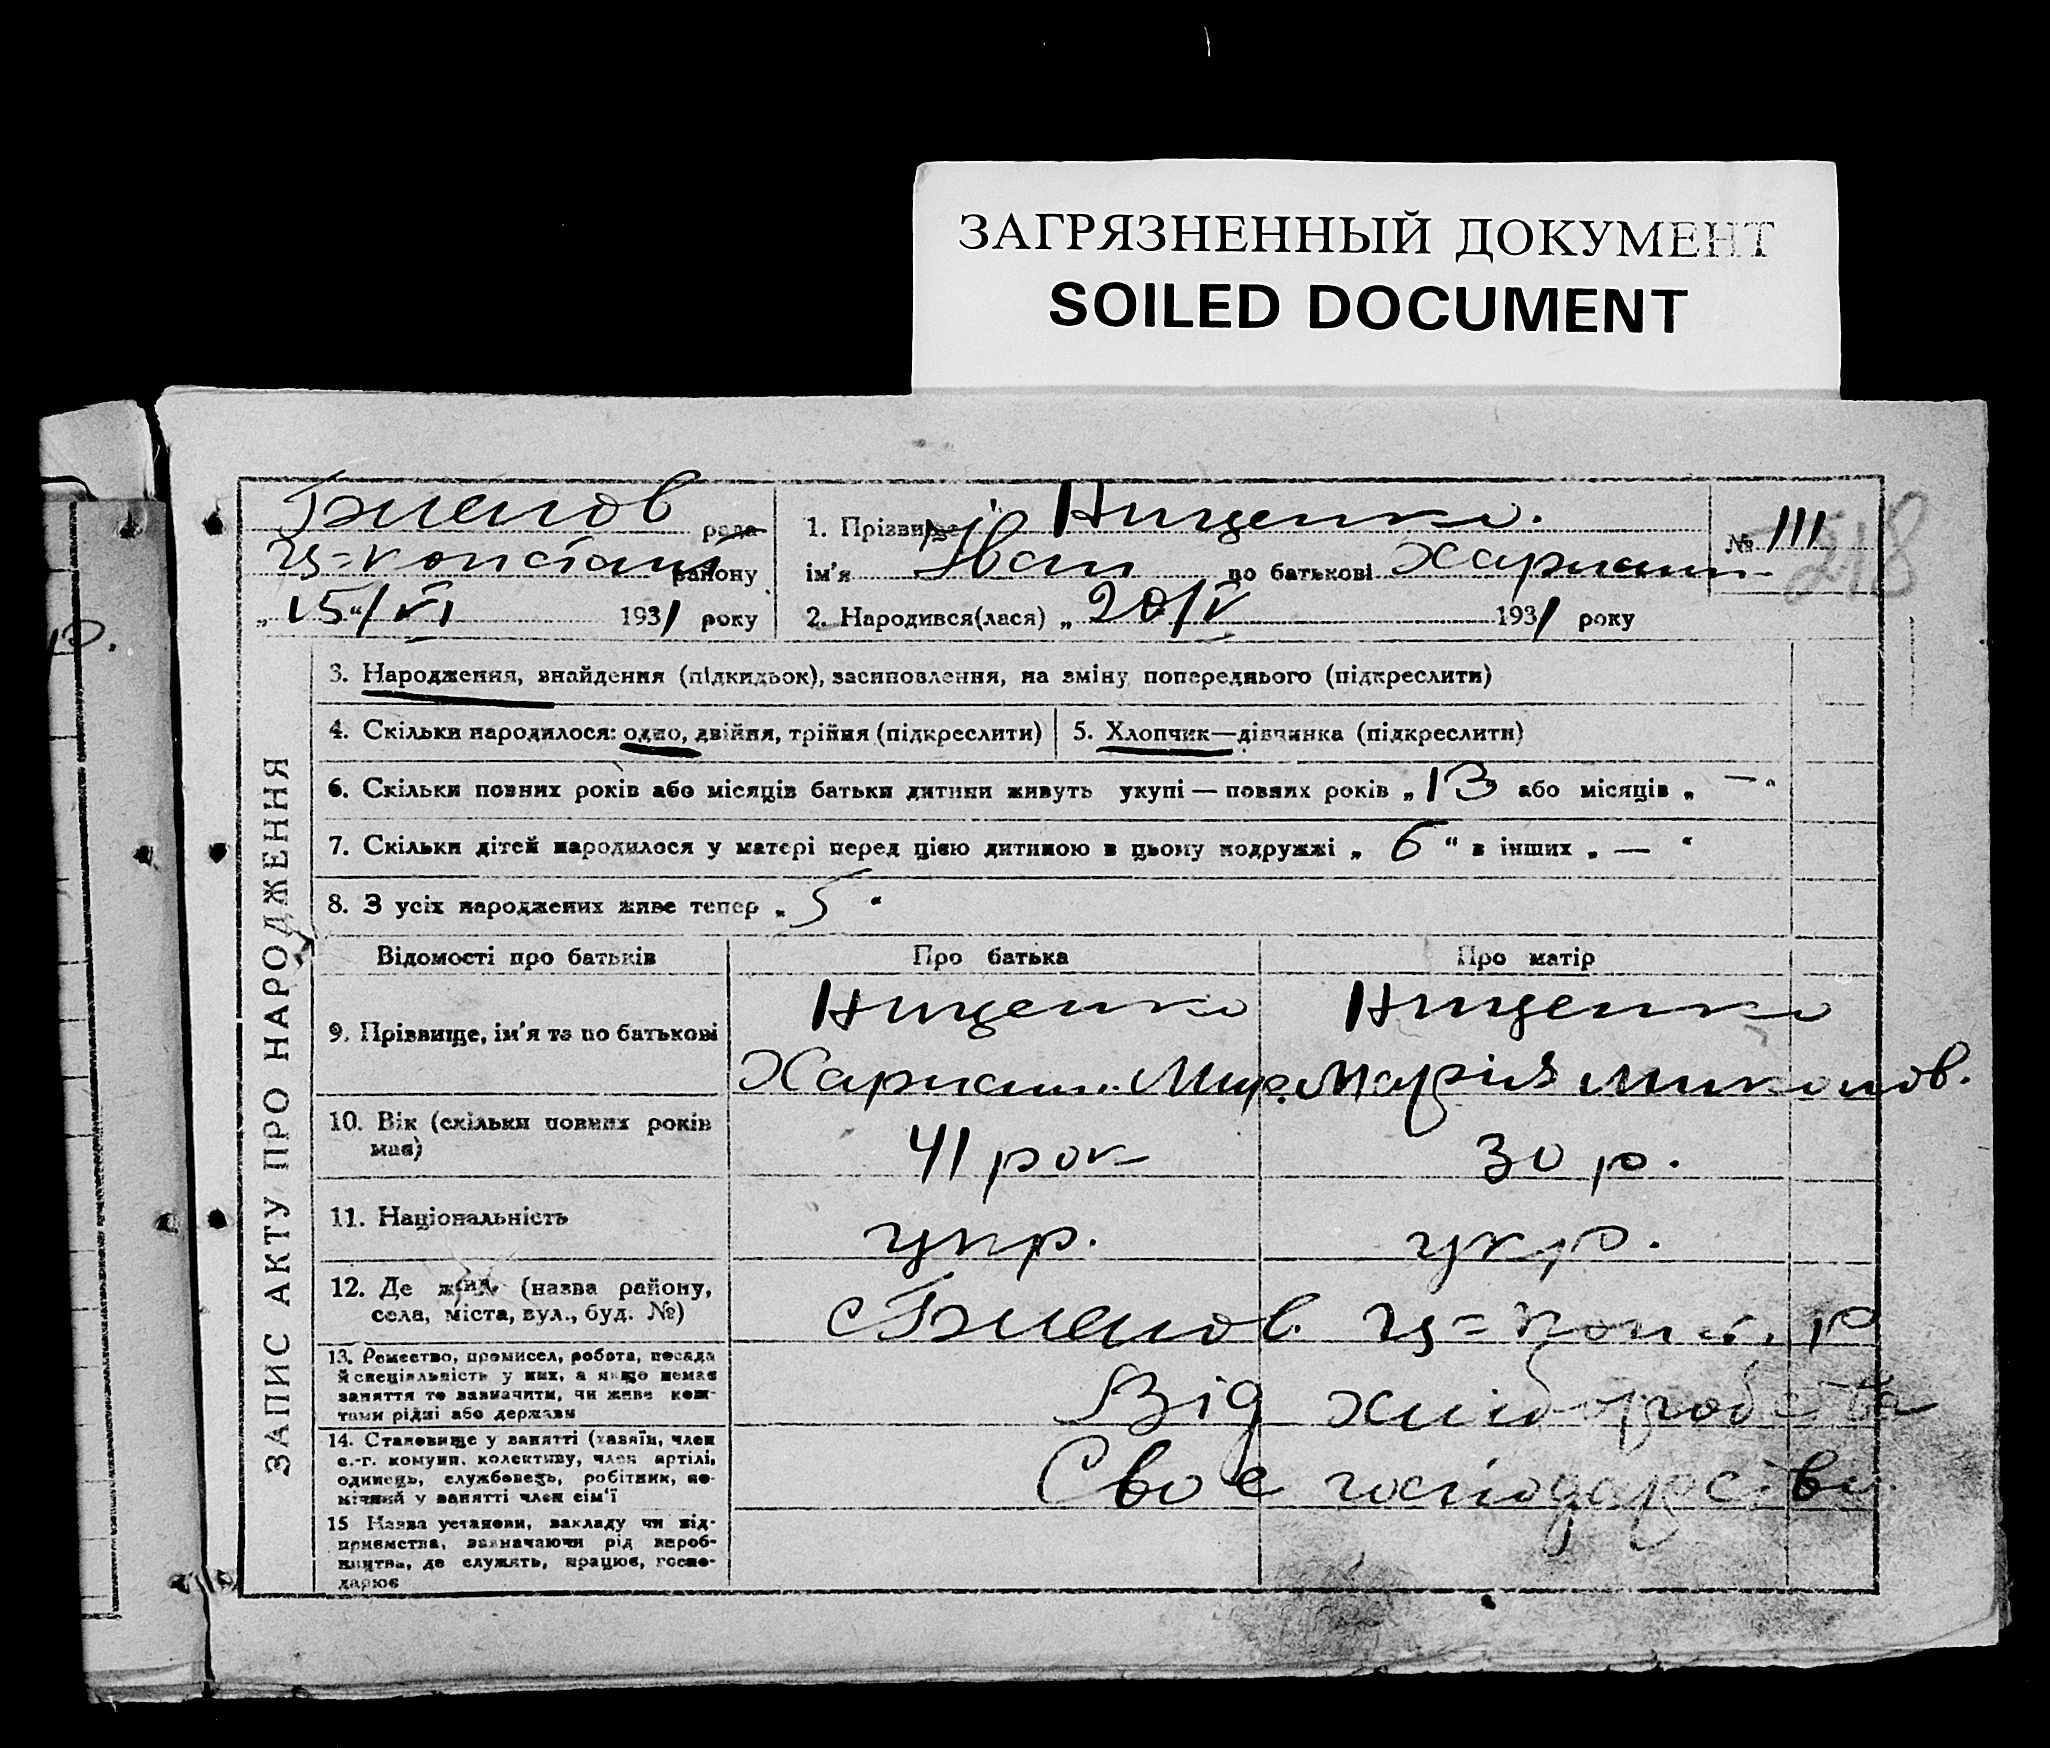 ЗАГРЯЗНЕННЫЙ ДОКУМЕНТ
SOILED DOCUMENT
рада
району
„15“/VI 1931 року
1. Прізвище Нищенко.
№ 111
218
ім'я Іван по батькові Харлами
2. Народився(лася) „20/V 1931 року
ЗАПИС АКТУ ПРО НАРОДЖЕННЯ
3. Народження, знайдення (підкидьок), засиновлення, на зміну попереднього (підкреслити)
4. Скільки народилося: одно, двійня, трійня (підкреслити)
5. Хлопчик—дівчинка (підкреслити)
6. Скільки повних років або місяців батьки дитини живуть укупі — повних років „13 або місяців „—“
7. Скільки дітей народилося у матері перед цією дитиною в цьому подружжі „6“ в інших „—“
8. З усіх народжених живе тепер „5“
Відомості про батьків
Про батька
Про матір
9. Прізвище, ім'я та по батькові
Нищенко
Харлами
Нищенко
Марія Миколов.
10. Вік (скільки повних років
має)
41 рок
30 р.
11. Національність
укр.
укр.
12. Де жив. (назва району,
села, міста, вул., буд. №)
13. Ремество, промисел, робота, посада
й спеціяльність у них, а якщо немає
заняття то зазначити, чи живе кош-
тами рідні або держави
Від хліборобства
14. Становище у занятті (хазяїн, член
с.-г. комуни, колективу, член артілі,
одинець, службовець, робітник, по-
мічний у занятті член сім'ї
Своє господарство.
15 Назва установи, закладу чи під-
приємства, зазначаючи рід вироб-
ництва, де служить, працює, госпо-
дарює